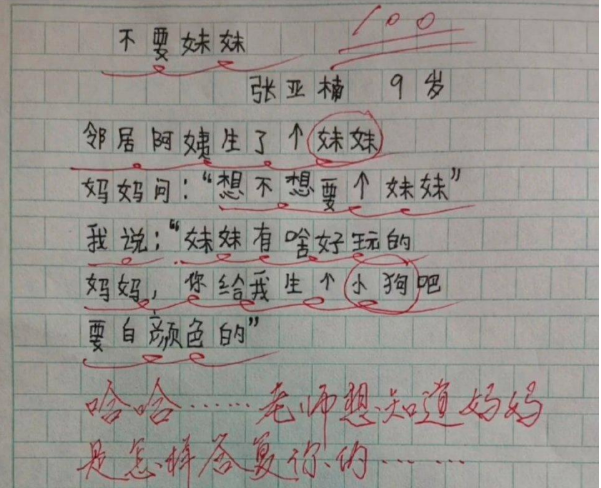 不要妹妹
100
张亚楠 9岁
邻居阿姨生了个妹妹
妈妈问：“想不想要个妹妹”
我说：“妹妹有啥好玩的
妈妈，你给我生个小狗吧
要白颜色的”
哈哈……老师想知道妈妈
是怎样答复你的……